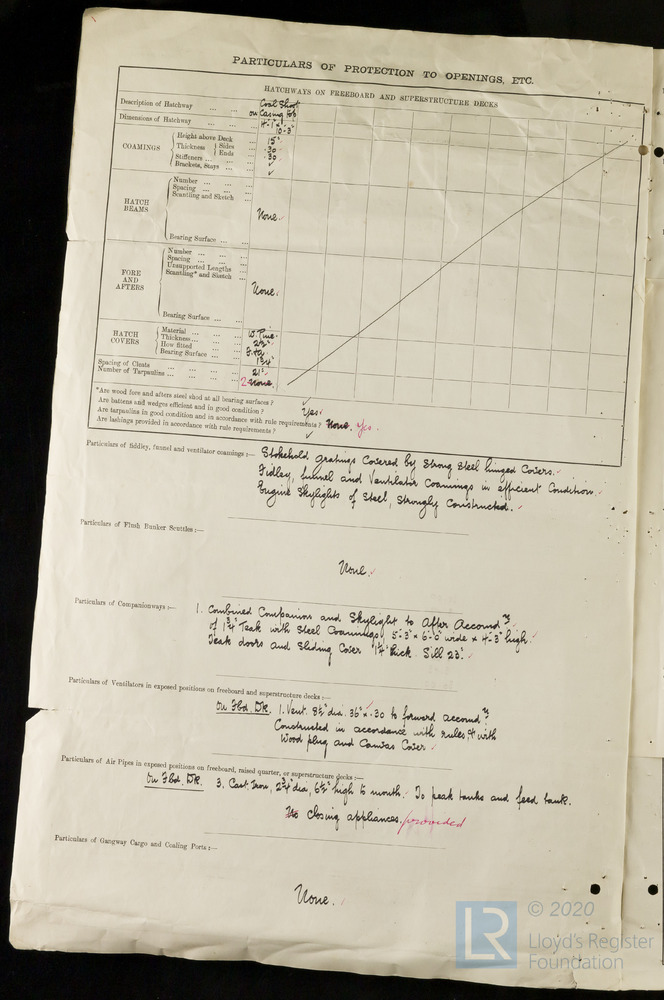 PARTICULARS OF PROTECTION TO OPENINGS, ETC.
HATCHWAYS ON FREEBOARD AND SUPERSTRUCTURE DECKS
Description of Hatchway ... ... Coal Shoot on Casing top
Dimensions of Hatchway ... ... 4'-1" x 10'-3"
COAMINGS
Height above Deck ... 15"
Thickness Sides ... .30
Ends ... .30
Stiffeners ... ✓
Brackets, Stays ... ✓
HATCH BEAMS
Number ...
Spacing ...
Scantling and Sketch
None.
Bearing Surface ...
FORE AND AFTERS
Number ...
Spacing ...
Unsupported Lengths
Scantling* and Sketch
None.
Bearing Surface ...
HATCH COVERS
Material ... W. Pine.
Thickness ... 2½"
How fitted ... F. & A.
Bearing Surface ... 1¾"
Spacing of Cleats ... 21"
Number of Tarpaulins ... 2 None.
*Are wood fore and afters steel shod at all bearing surfaces? ✓
Are battens and wedges efficient and in good condition? Yes.
Are tarpaulins in good condition and in accordance with rule requirements? None. Yes.
Are lashings provided in accordance with rule requirements? ✓
Particulars of fiddley, funnel and ventilator coamings :— Stokehold gratings covered by strong steel hinged covers.
Fidley, funnel and Ventilator Coamings in efficient Condition.
Engine Skylights of steel, strongly constructed.
Particulars of Flush Bunker Scuttles :—
None.
Particulars of Companionways :— 1. Combined Companion and Skylight to After Accomdn
of 1¾" Teak with Steel Coamings, 5'-3" x 6'-0" wide x 4'-3" high.
Teak doors and Sliding Cover 1¼" thick. Sill 23".
Particulars of Ventilators in exposed positions on freeboard and superstructure decks :—
On Fbd. Dk. 1. Vent. 8½" dia. 36" x .30 to forward accomdn
Constructed in accordance with rules, & with
Wood plug and Canvas Cover
Particulars of Air Pipes in exposed positions on freeboard, raised quarter, or superstructure decks :—
On Fbd. Dk. 3. Cast Iron, 2¾" dia, 6½" high to mouth. To peak tanks and feed tank.
No closing appliances. provided
Particulars of Gangway Cargo and Coaling Ports :—
None.
LR
© 2020
Lloyd's Register
Foundation